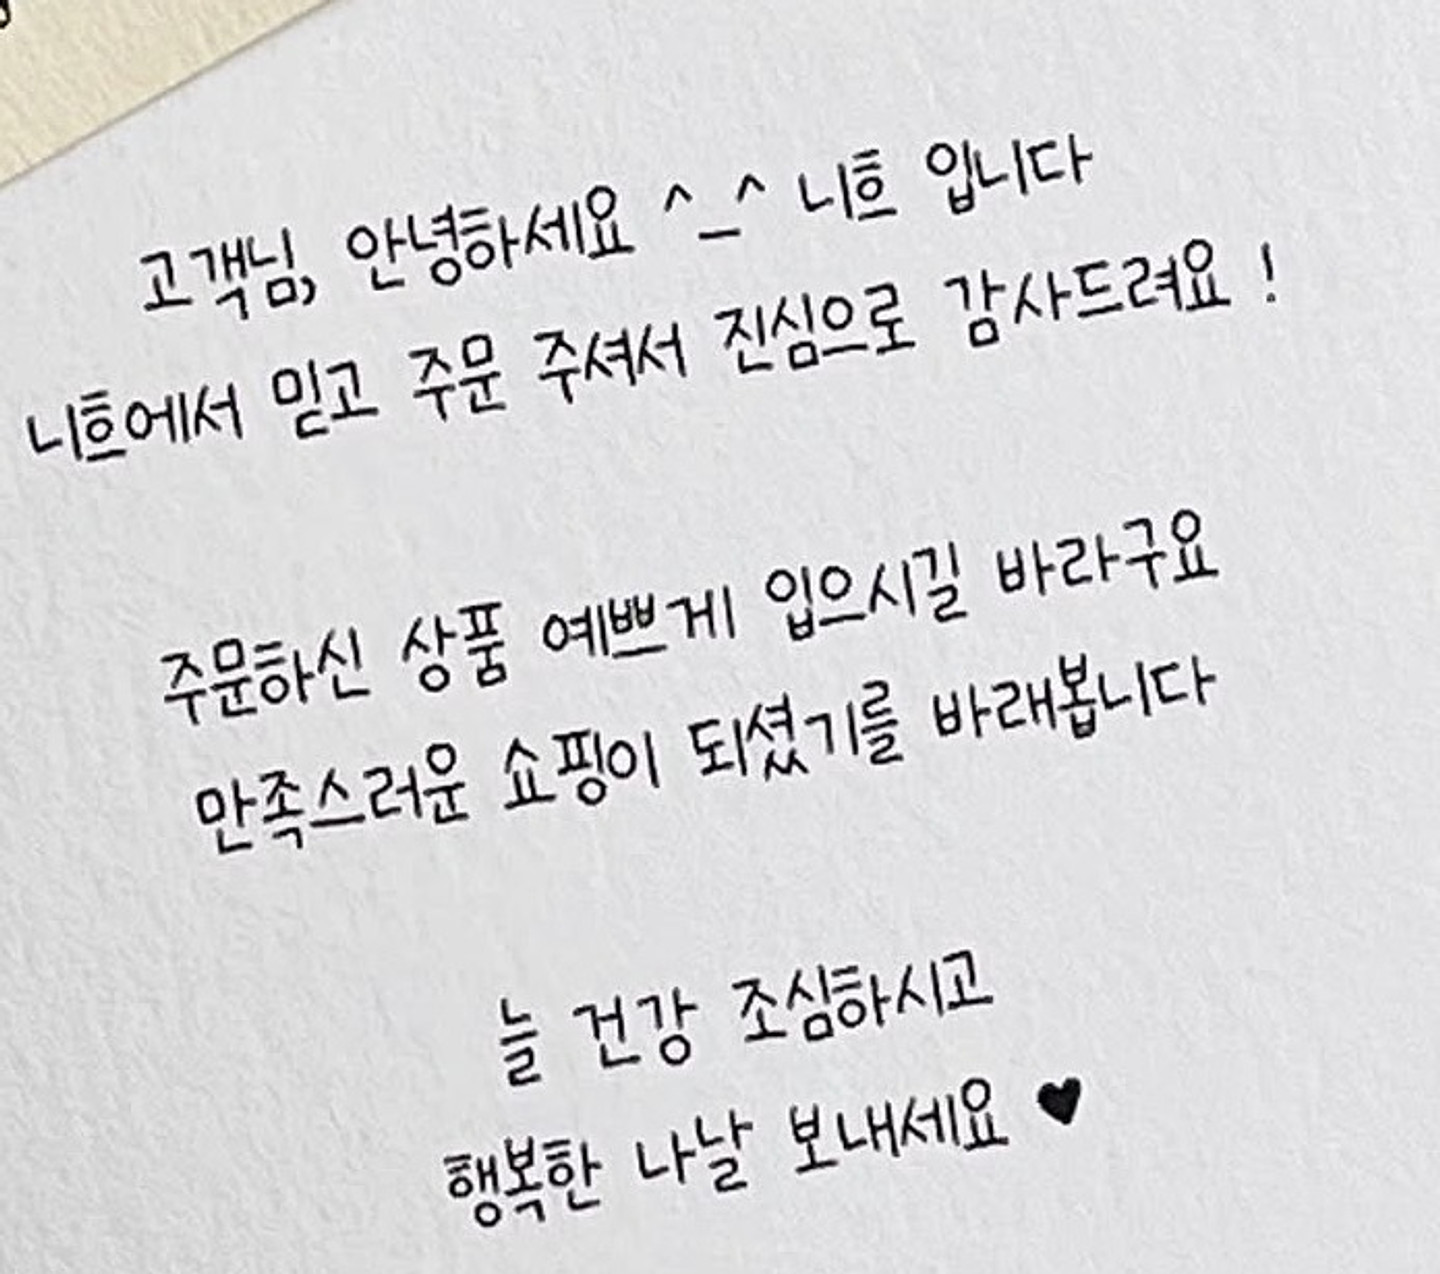 고객님, 안녕하세요 ^_^ 니흐 입니다
니흐에서 믿고 주문 주셔서 진심으로 감사드려요 !
주문하신 상품 예쁘게 입으시길 바라구요
만족스러운 쇼핑이 되셨기를 바래봅니다
늘 건강 조심하시고
행복한 나날 보내세요 ♥